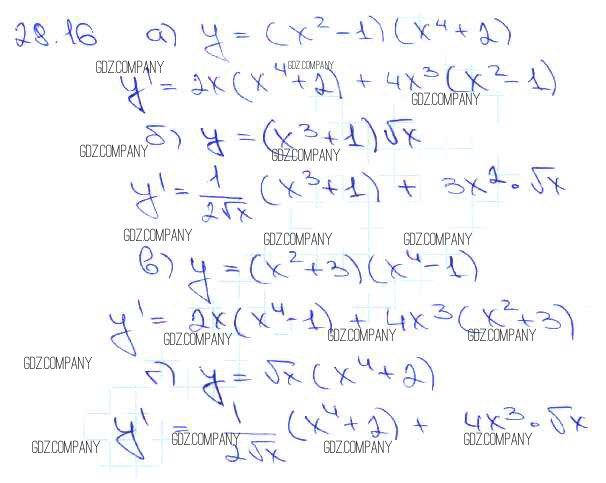 28.16 а) y = (x² - 1)(x⁴ + 2)
GDZ.COMPANY GDZ.COMPANY
y' = 2x(x⁴ + 2) + 4x³(x² - 1)
GDZ.COMPANY
б) y = (x³ + 1)√x
GDZ.COMPANY GDZ.COMPANY
y' = 1/(2√x) (x³ + 1) + 3x² · √x
GDZ.COMPANY GDZ.COMPANY GDZ.COMPANY
в) y = (x² + 3)(x⁴ - 1)
y' = 2x(x⁴ - 1) + 4x³(x² + 3)
GDZ.COMPANY GDZ.COMPANY GDZ.COMPANY
GDZ.COMPANY
г) y = √x (x⁴ + 2)
y' = 1/(2√x) (x⁴ + 2) + 4x³ · √x
GDZ.COMPANY GDZ.COMPANY GDZ.COMPANY GDZ.COMPANY